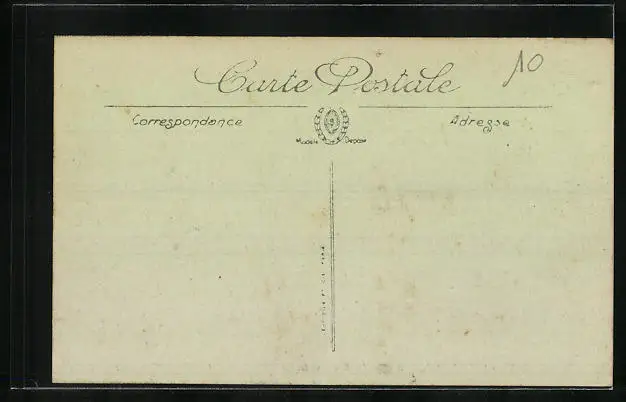 Carte Postale
10
Correspondance
Adresse
Modèle Déposé